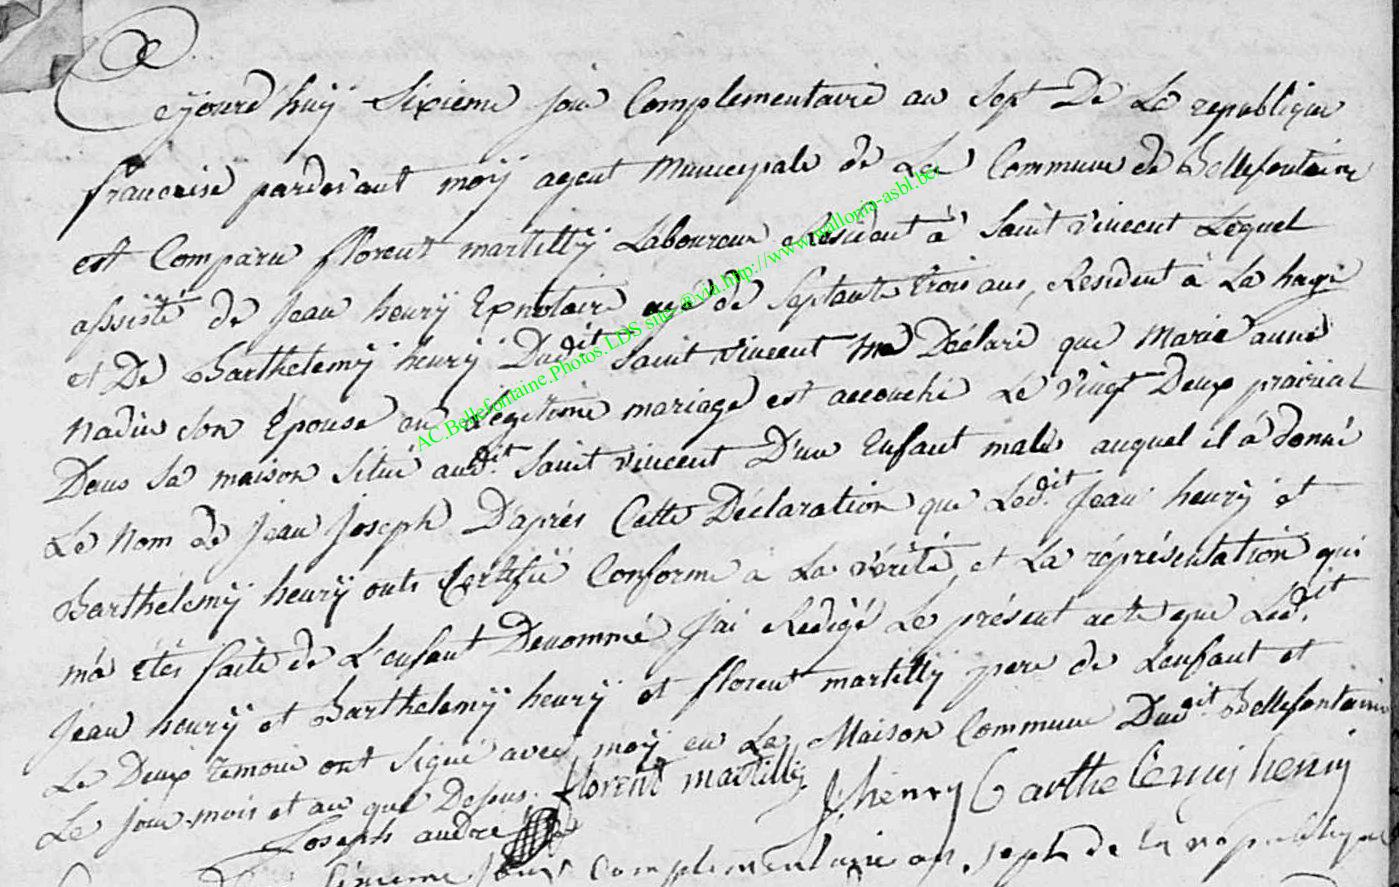 Cejourd'huÿ Sixieme jour Complementaire an Sept De La republique
francaise pardevant moÿ agent Municipale de La Commune de Bellefontaine
est Comparu florent martillÿ Laboureur Résident à Saint Vincent Lequel
assisté de Jean henrÿ Exnotaire agé de Septante trois ans, Résident à La hage
et De Barthelemÿ henrÿ Dudit Saint Vincent Ma Déclaré que Marie anne
nadin Son Épouse en Légitime mariage est accouché Le Vingt Deux prairial
Dans Sa maison Situé audit Saint Vincent D'un Enfant male auquel il à donné
Le Nom de Jean Joseph D'aprés Cette Déclaration que Ledit Jean henrÿ et
Barthélemÿ henrÿ onts Certifié Conforme a La Vérité, et La réprésentation qui
m'a étés faite de L'enfant Denommé J'ai Rédigé Le présent acte que Ledit
Jean henrÿ et Barthelemÿ henrÿ et florent martillÿ pere de Lenfant et
Le Deux temoin ont Signé avec moÿ en La Maison Commune Dudit Bellefontaine
Le Jour mois et an que Dessus. florent martilly J: henry Barthelemij henrij
Joseph andré
Sixieme Jour Complementaire an Septh de la republique
AC.Bellefontaine.Photos.LDS site @via http://www.wallonia-asbl.be.